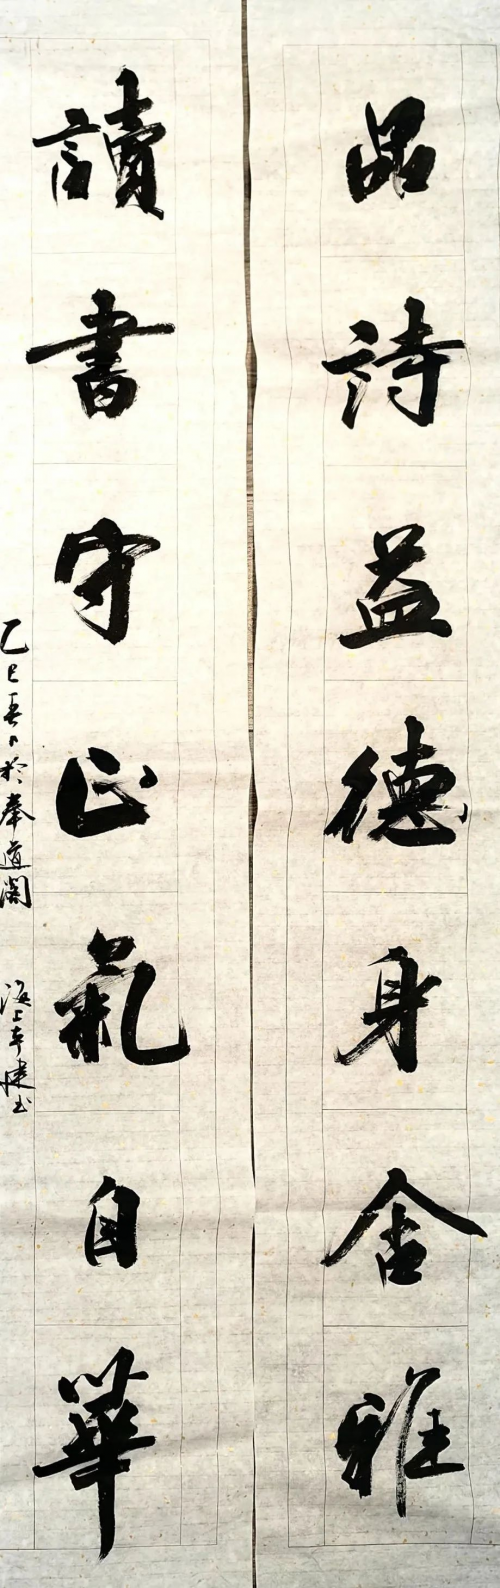 品詩益德身舍雅
讀書守正氣自華
乙巳春日於奉道閣
海上辛建书